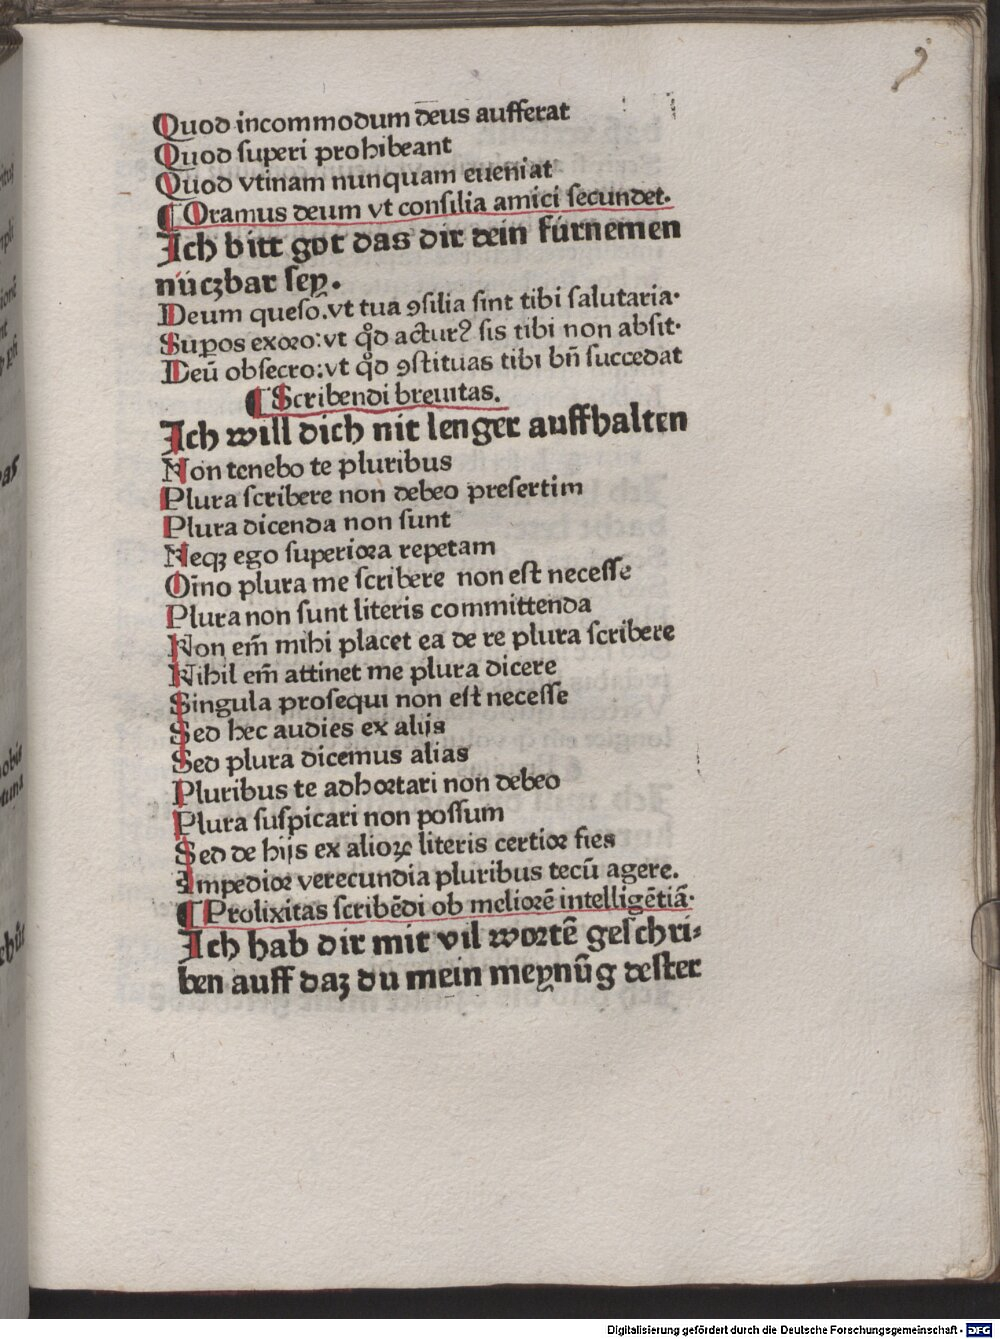 Quod incommodum deus aufferat
Quod superi prohibeant
Quod vtinam nunquam eueniat
¶ Oramus deum vt consilia amici secundet.
Ich bitt got das dir dein fürnemen
nüczbar sey.
Deum queso.vt tua ꝯsilia sint tibi salutaria.
Suꝑos exoro:vt qd̊ actur? sis tibi non absit.
Deū obsecro:vt qd̊ ꝯstituas tibi bn̄ succedat
¶ Scribendi breuitas.
Ich will dich nit lenger auffhalten
Non tenebo te pluribus
Plura scribere non debeo presertim
Plura dicenda non sunt
Neqꝫ ego superiora repetam
Oīno plura me scribere non est necesse
Plura non sunt literis committenda
Non em̄ mihi placet ea de re plura scribere
Nihil em̄ attinet me plura dicere
Singula prosequi non est necesse
Sed hec audies ex alijs
Sed plura dicemus alias
Pluribus te adhortari non debeo
Plura suspicari non possum
Sed de hijs ex alioꝝ literis certior fies
Impedior verecundia pluribus tecū agere.
¶ Prolixitas scribēdi ob meliorē intelligētiā.
Ich hab dir mit vil wortē geschri⸗
ben auff daz du mein meynūg dester
Digitalisierung gefördert durch die Deutsche Forschungsgemeinschaft - DFG